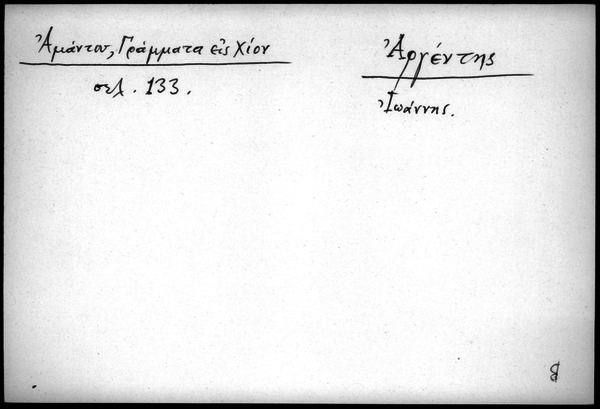 Ἀμάντου, Γράμματα εἰς Χίον
σελ. 133.
Ἀργέντης
Ἰωάννης.